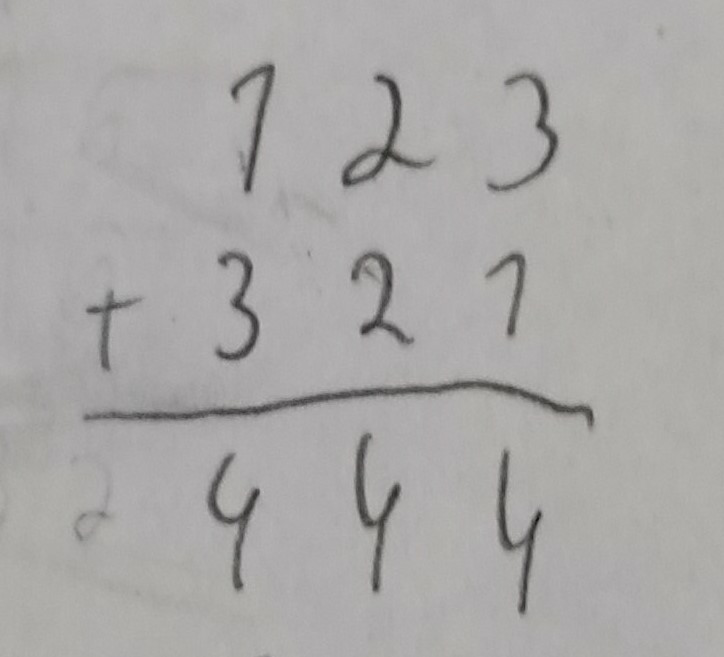 1 2 3
+ 3 2 1
4 4 4